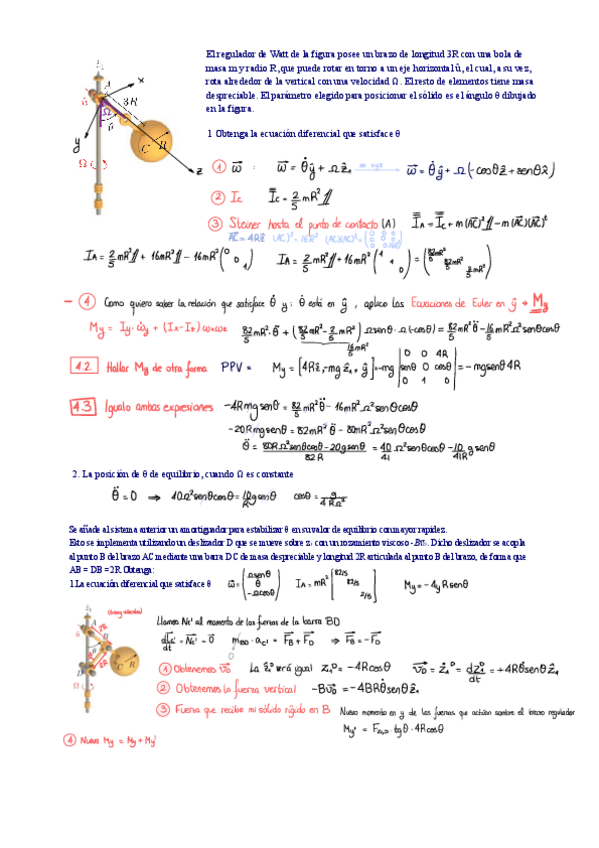 El regulador de Watt de la figura posee un brazo de longitud 3R con una bola de
masa m y radio R, que puede rotar en torno a un eje horizontal û, el cual, a su vez,
rota alrededor de la vertical con una velocidad Ω. El resto de elementos tiene masa
despreciable. El parámetro elegido para posicionar el sólido es el ángulo θ dibujado
en la figura.
x
3R
Ω
y
C R
z
1 Obtenga la ecuación diferencial que satisface θ
① ω⃗ : ω⃗ = θ̇ŷ + Ωẑ₁ ω⃗ = θ̇ŷ + Ω(-cosθẑ + senθx̂)
② Ic I̿c = 2/5 mR² 1
③ Steiner hasta el punto de contacto (A) I̿A = I̿c + m(AC)² 1 - m(AC)(AC)ᵗ
AC = 4Rẑ (AC)² = 16R² (AC)(AC)ᵗ = (0 0 0 0 0 0 0 0 16R²)
IA = 2/5 mR² 1 + 16mR² 1 - 16mR² (0 0 1) IA = 2/5 mR² 1 + 16mR² (1 1 0) = (82/5 mR² 82/5 mR² 2/5 mR²)
- ④ Como quiero saber la relación que satisface θ̈ y : θ̈ está en ŷ, aplico las Ecuaciones de Euler en ŷ → My
My = Iy·ω̇y + (Ix-Iz)ωxωz 82/5 mR²·θ̈ + (82/5 mR² - 2/5 mR²) Ωsenθ·Ω(-cosθ) = 82/5 mR²θ̈ - 16 mR²Ω²senθcosθ
16mR²
4.2. Hallar My de otra forma PPV = My = [4Rẑ, -mgẑ₁, ŷ] = -mg |0 0 4R senθ 0 cosθ 0 1 0| = -mgsenθ4R
4.3 Igualo ambas expresiones -4Rmgsenθ = 82/5 mR²θ̈ - 16mR²Ω²senθcosθ
-20Rmgsenθ = 82mR²θ̈ - 80mR²Ω²senθcosθ
θ̈ = (80RΩ²senθcosθ - 20gsenθ)/82R = 40/41 Ω²senθcosθ - 10/41R gsenθ
2. La posición de θ de equilibrio, cuando Ω es constante
θ̈ = 0 ⇒ 40Ω²senθcosθ = 10/R gsenθ cosθ = g/4RΩ²
Se añade al sistema anterior un amortiguador para estabilizar θ en su valor de equilibrio con mayor rapidez.
Esto se implementa utilizando un deslizador D que se mueve sobre z₁ con un rozamiento viscoso Dicho deslizador se acopla
al punto B del brazo AC mediante una barra DC de masa despreciable y longitud 2R articulada al punto B del brazo, de forma que
AB = DB = 2R Obtenga:
1.La ecuación diferencial que satisface θ ω⃗ = (Ωsenθ θ̇ -Ωcosθ) IA = mR² [82/5 82/5 2/5] My = -4gRsenθ
Llamo Nc' al momento de las fuerzas de la barra BD
dLc'/dt = Nc' = 0 mBD·aG' = FB + FD ⇒ FB = -FD
① Obtenemos vD La ẑ₁ᴰ será igual z₁ᴰ = -4Rcosθ vD = ż₁ᴰ = dz₁ᴰ/dt = +4Rθ̇senθẑ₁
② Obtenemos la fuerza vertical -BvD = -4BRθ̇senθẑ₁
③ Fuerza que recibe mi sólido rígido en B Nuevo momento en y de las fuerzas que actúan sobre el brazo regulador
④ Nuevo My = My + My' My' = ·tgθ·4Rcosθ